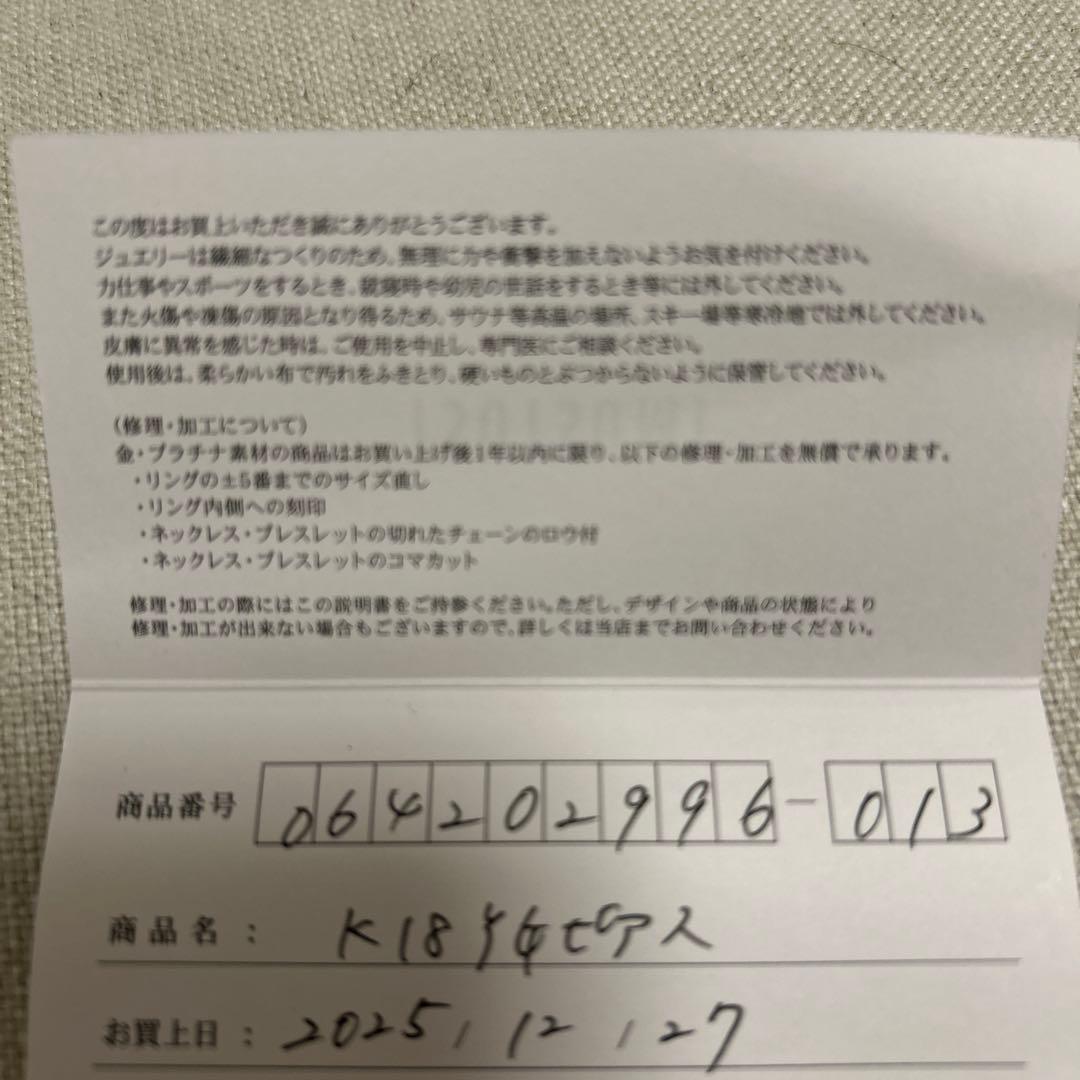 この度はお買上いただき誠にありがとうございます。
ジュエリーは繊細なつくりのため、無理に力や衝撃を加えないようお気を付けください。
力仕事やスポーツをするとき、就寝時や幼児の世話をするとき等には外してください。
また火傷や凍傷の原因となり得るため、サウナ等高温の場所、スキー場等寒冷地では外してください。
皮膚に異常を感じた時は、ご使用を中止し、専門医にご相談ください。
使用後は、柔らかい布で汚れをふきとり、硬いものとぶつからないように保管してください。
(修理・加工について)
金・プラチナ素材の商品はお買い上げ後1年以内に限り、以下の修理・加工を無償で承ります。
・リングの±5番までのサイズ直し
・リング内側への刻印
・ネックレス・ブレスレットの切れたチェーンのロウ付
・ネックレス・ブレスレットのコマカット
修理・加工の際にはこの説明書をご持参ください。ただし、デザインや商品の状態により
修理・加工が出来ない場合もございますので、詳しくは当店までお問い合わせください。
商品番号 064202996-013
商品名: K18YGピアス
お買上日: 2025, 12, 27